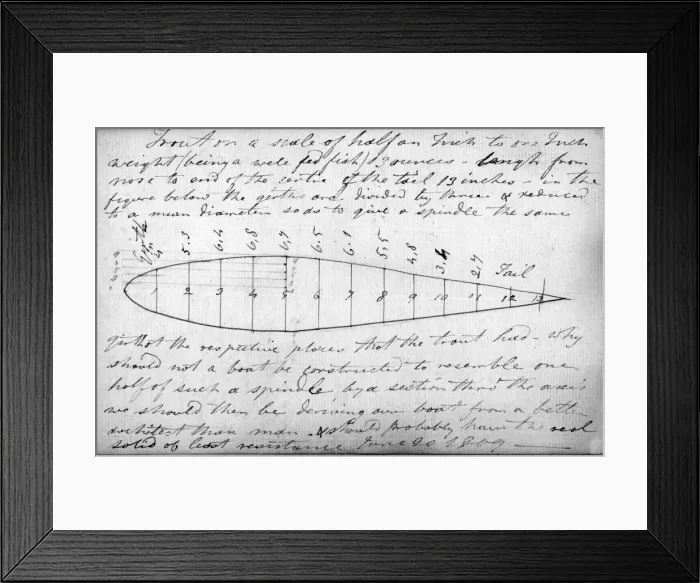 Trout on a scale of half an Inch to one Inch
weight (being a well fed fish) 13 ounces - length from
nose to end of the centre of the tail 13 inches - in the
figure below the girths are divided by three & reduced
to a mean diameter so as to give a spindle the same
Girth
in
4 5.3 6.4 6,8 6,7 6.5 6.1 5,5 4,8 3.4 2,7 Tail
1 2 3 4 5 6 7 8 9 10 11 12 13
girth at the respective places that the trout had - why
should not a boat be constructed to resemble one
half of such a spindle by a section thro' the axis
we should then be deriving our boat from a better
architect than man - & should probably have the real
solid of least resistance June 20 1809